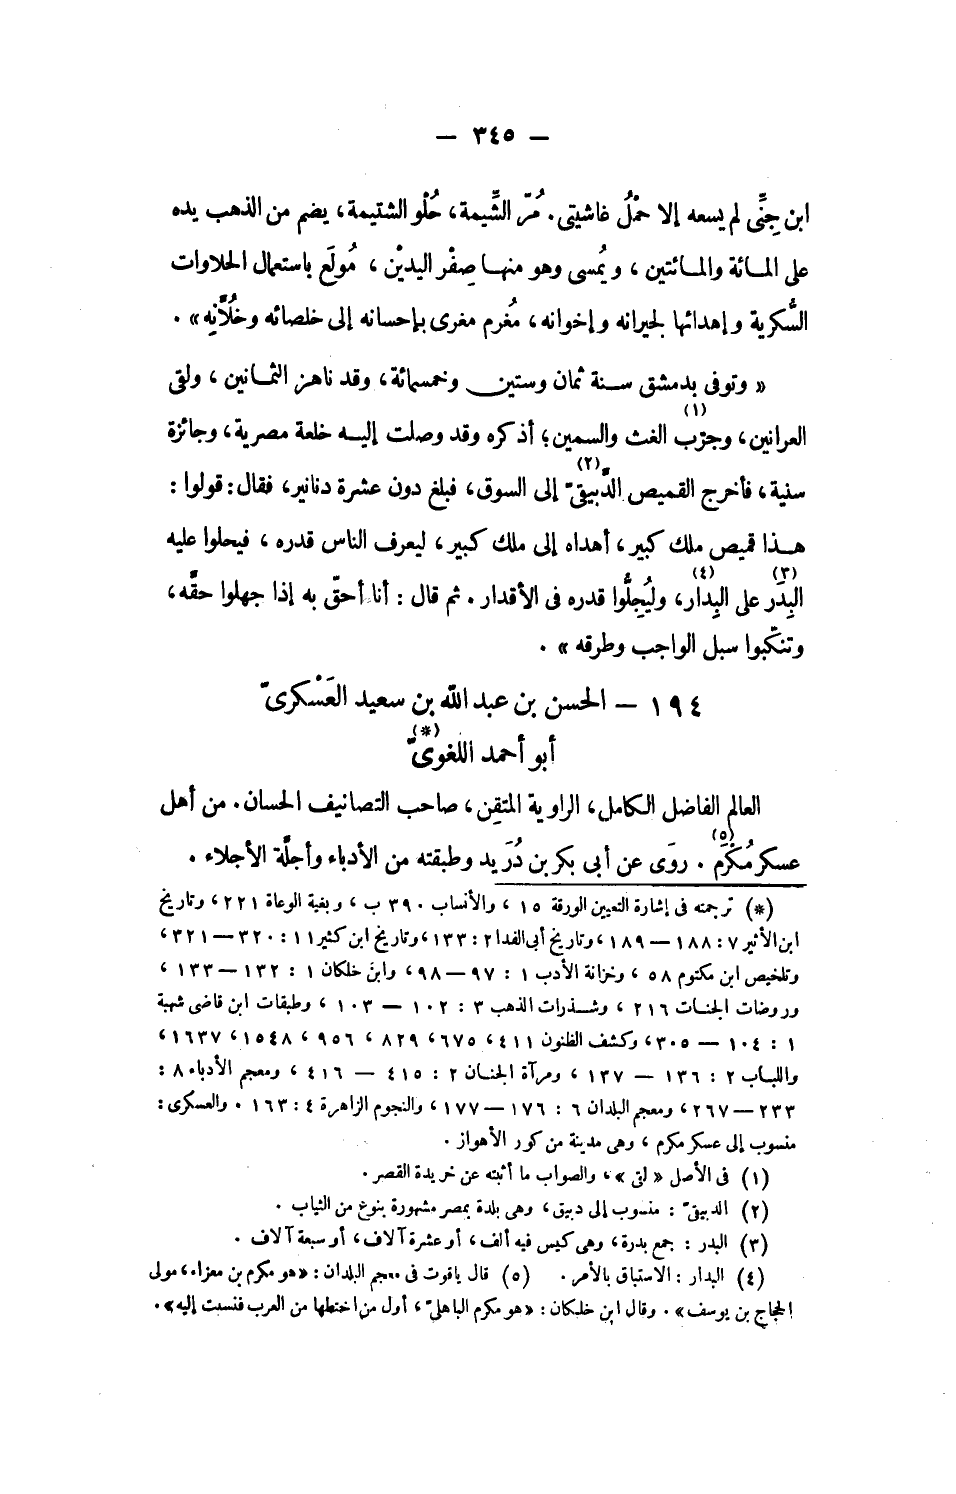 — ٣٤٥ —
ابن جِنِّى لم يسعه إلا حمْلُ غاشيتى. مُرّ الشِّيمة، حُلْو الشتيمة، يضم من الذهب يده
على المائة والمائتين، ويُمسى وهو منها صِفْر اليديْن، مُولَع باستعمال الحلاوات
السُّكرية وإهدائها لجيرانه وإخوانه، مُغرم مغرى بإحسانه إلى خلصائه وخُلَّانِه».
« وتوفى بدمشق سنة ثمان وستين وخمسمائة، وقد ناهز الثمانين، ولقى
العرانين(١)، وجرّب الغث والسمين؛ أذكره وقد وصلت إليه خلعة مصرية، وجائزة
سنية، فأخرج القميص الدَّبيقىّ(٢) إلى السوق، فبلغ دون عشرة دنانير، فقال: قولوا:
هذا قميص ملك كبير، أهداه إلى ملك كبير، ليعرف الناس قدره، فيحلوا عليه
البِدَر(٣) على البِدار(٤)، وليُجِلُّوا قدره فى الأقدار. ثم قال: أنا أحقّ به إذا جهلوا حقَّه،
وتنكّبوا سبل الواجب وطرقه ».
١٩٤ — الحسن بن عبد الله بن سعيد العَسْكرىّ
أبو أحمد اللغوىّ(*)
العالم الفاضل الكامل، الراوية المتقِن، صاحب التصانيف الحسان. من أهل
عسكر مُكْرَم(٥). روَى عن أبى بكر بن دُرَيد وطبقته من الأدباء وأجلَّة الأجلاء.
(*) ترجمته فى إشارة التعيين الورقة ١٥، والأنساب ٣٩٠ ب، وبغية الوعاة ٢٢١، وتاريخ
ابن الأثير ٧: ١٨٨ — ١٨٩، وتاريخ أبى الفدا ٢: ١٣٣، وتاريخ ابن كثير ١١: ٣٢٠ — ٣٢١،
وتلخيص ابن مكتوم ٥٨، وخزانة الأدب ١: ٩٧ — ٩٨، وابن خلكان ١: ١٣٢ — ١٣٣،
وروضات الجنات ٢١٦، وشذرات الذهب ٣: ١٠٢ — ١٠٣، وطبقات ابن قاضى شهبة
١: ١٠٤ — ٣٠٥، وكشف الظنون ٤١١، ٦٧٥، ٨٢٩، ٩٥٦، ١٥٤٨، ١٦٣٧،
واللباب ٢: ١٣٦ — ١٣٧، ومرآة الجنان ٢: ٤١٥ — ٤١٦، ومعجم الأدباء ٨:
٢٣٣ — ٢٦٧، ومعجم البلدان ٦: ١٧٦ — ١٧٧، والنجوم الزاهرة ٤: ١٦٣. والعسكرى:
منسوب إلى عسكر مكرم، وهى مدينة من كور الأهواز.
(١) فى الأصل « لتى »، والصواب ما أثبته عن خريدة القصر.
(٢) الدبيقىّ: منسوب إلى دبيق، وهى بلدة بمصر مشهورة بنوع من الثياب.
(٣) البدر: جمع بدرة، وهى كيس فيه ألف، أو عشرة آلاف، أو سبعة آلاف.
(٤) البدار: الاستباق بالأمر. (٥) قال ياقوت فى معجم البلدان: «هو مكرم بن معزاء، مولى
الحجاج بن يوسف». وقال ابن خلكان: «هو مكرم الباهلىّ، أول من اختطها من العرب فنسبت إليه».